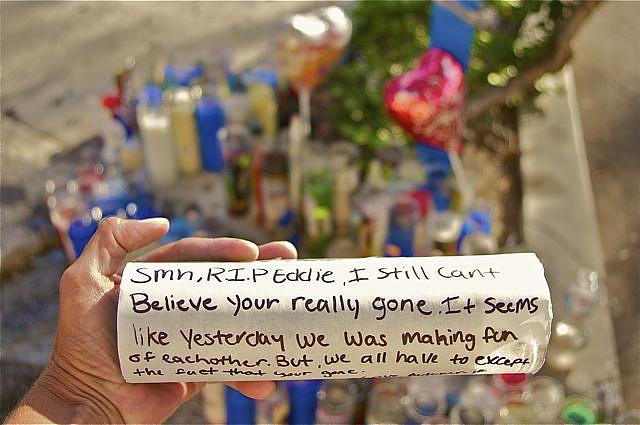 Smh, R.I.P Eddie, I still can't
Believe your really gone. It seems
like yesterday we was making fun
of eachother. But, we all have to except
the fact that your gone.